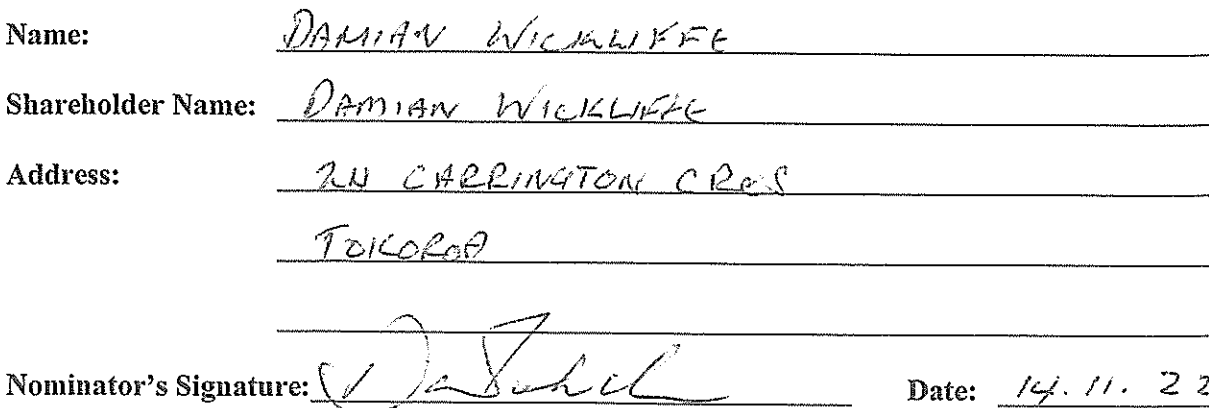 Name: DAMIAN WICKLIFFE
Shareholder Name: DAMIAN WICKLIFFE
Address: CARRINGTON CRES
TOKOROA
Nominator's Signature: Date: 14.11.22